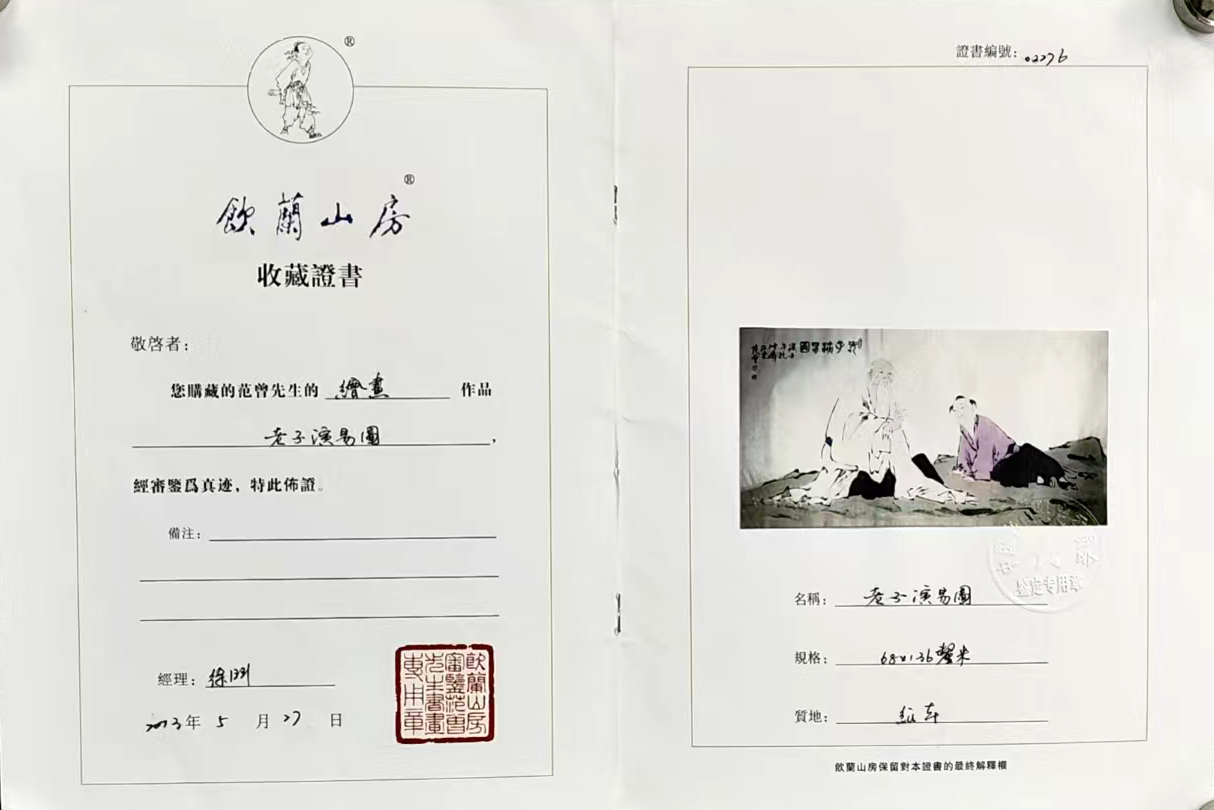 ®
飲蘭山房®
收藏證書
敬啓者：
您購藏的范曾先生的 繪畫 作品
老子演易圖，
經審鑒爲真迹，特此佈證。
備注：
經理：徐
2013年 5 月 27 日
飲蘭山房
審鑒范曾
先生書畫
專用章
證書編號：02276
老子演易圖
鑒定专用章
名稱：老子演易圖
規格：68×136 釐米
質地：紙本
飲蘭山房保留對本證書的最終解釋權